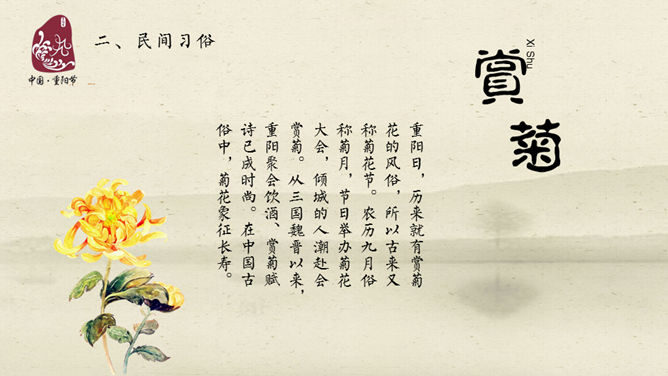 中国·重阳节
二、民间习俗
Xi Shu
赏菊
重阳日，历来就有赏菊
花的风俗，所以古来又
称菊花节。农历九月俗
称菊月，节日举办菊花
大会，倾城的人潮赴会
赏菊。从三国魏晋以来，
重阳聚会饮酒、赏菊赋
诗已成时尚。在中国古
俗中，菊花象征长寿。